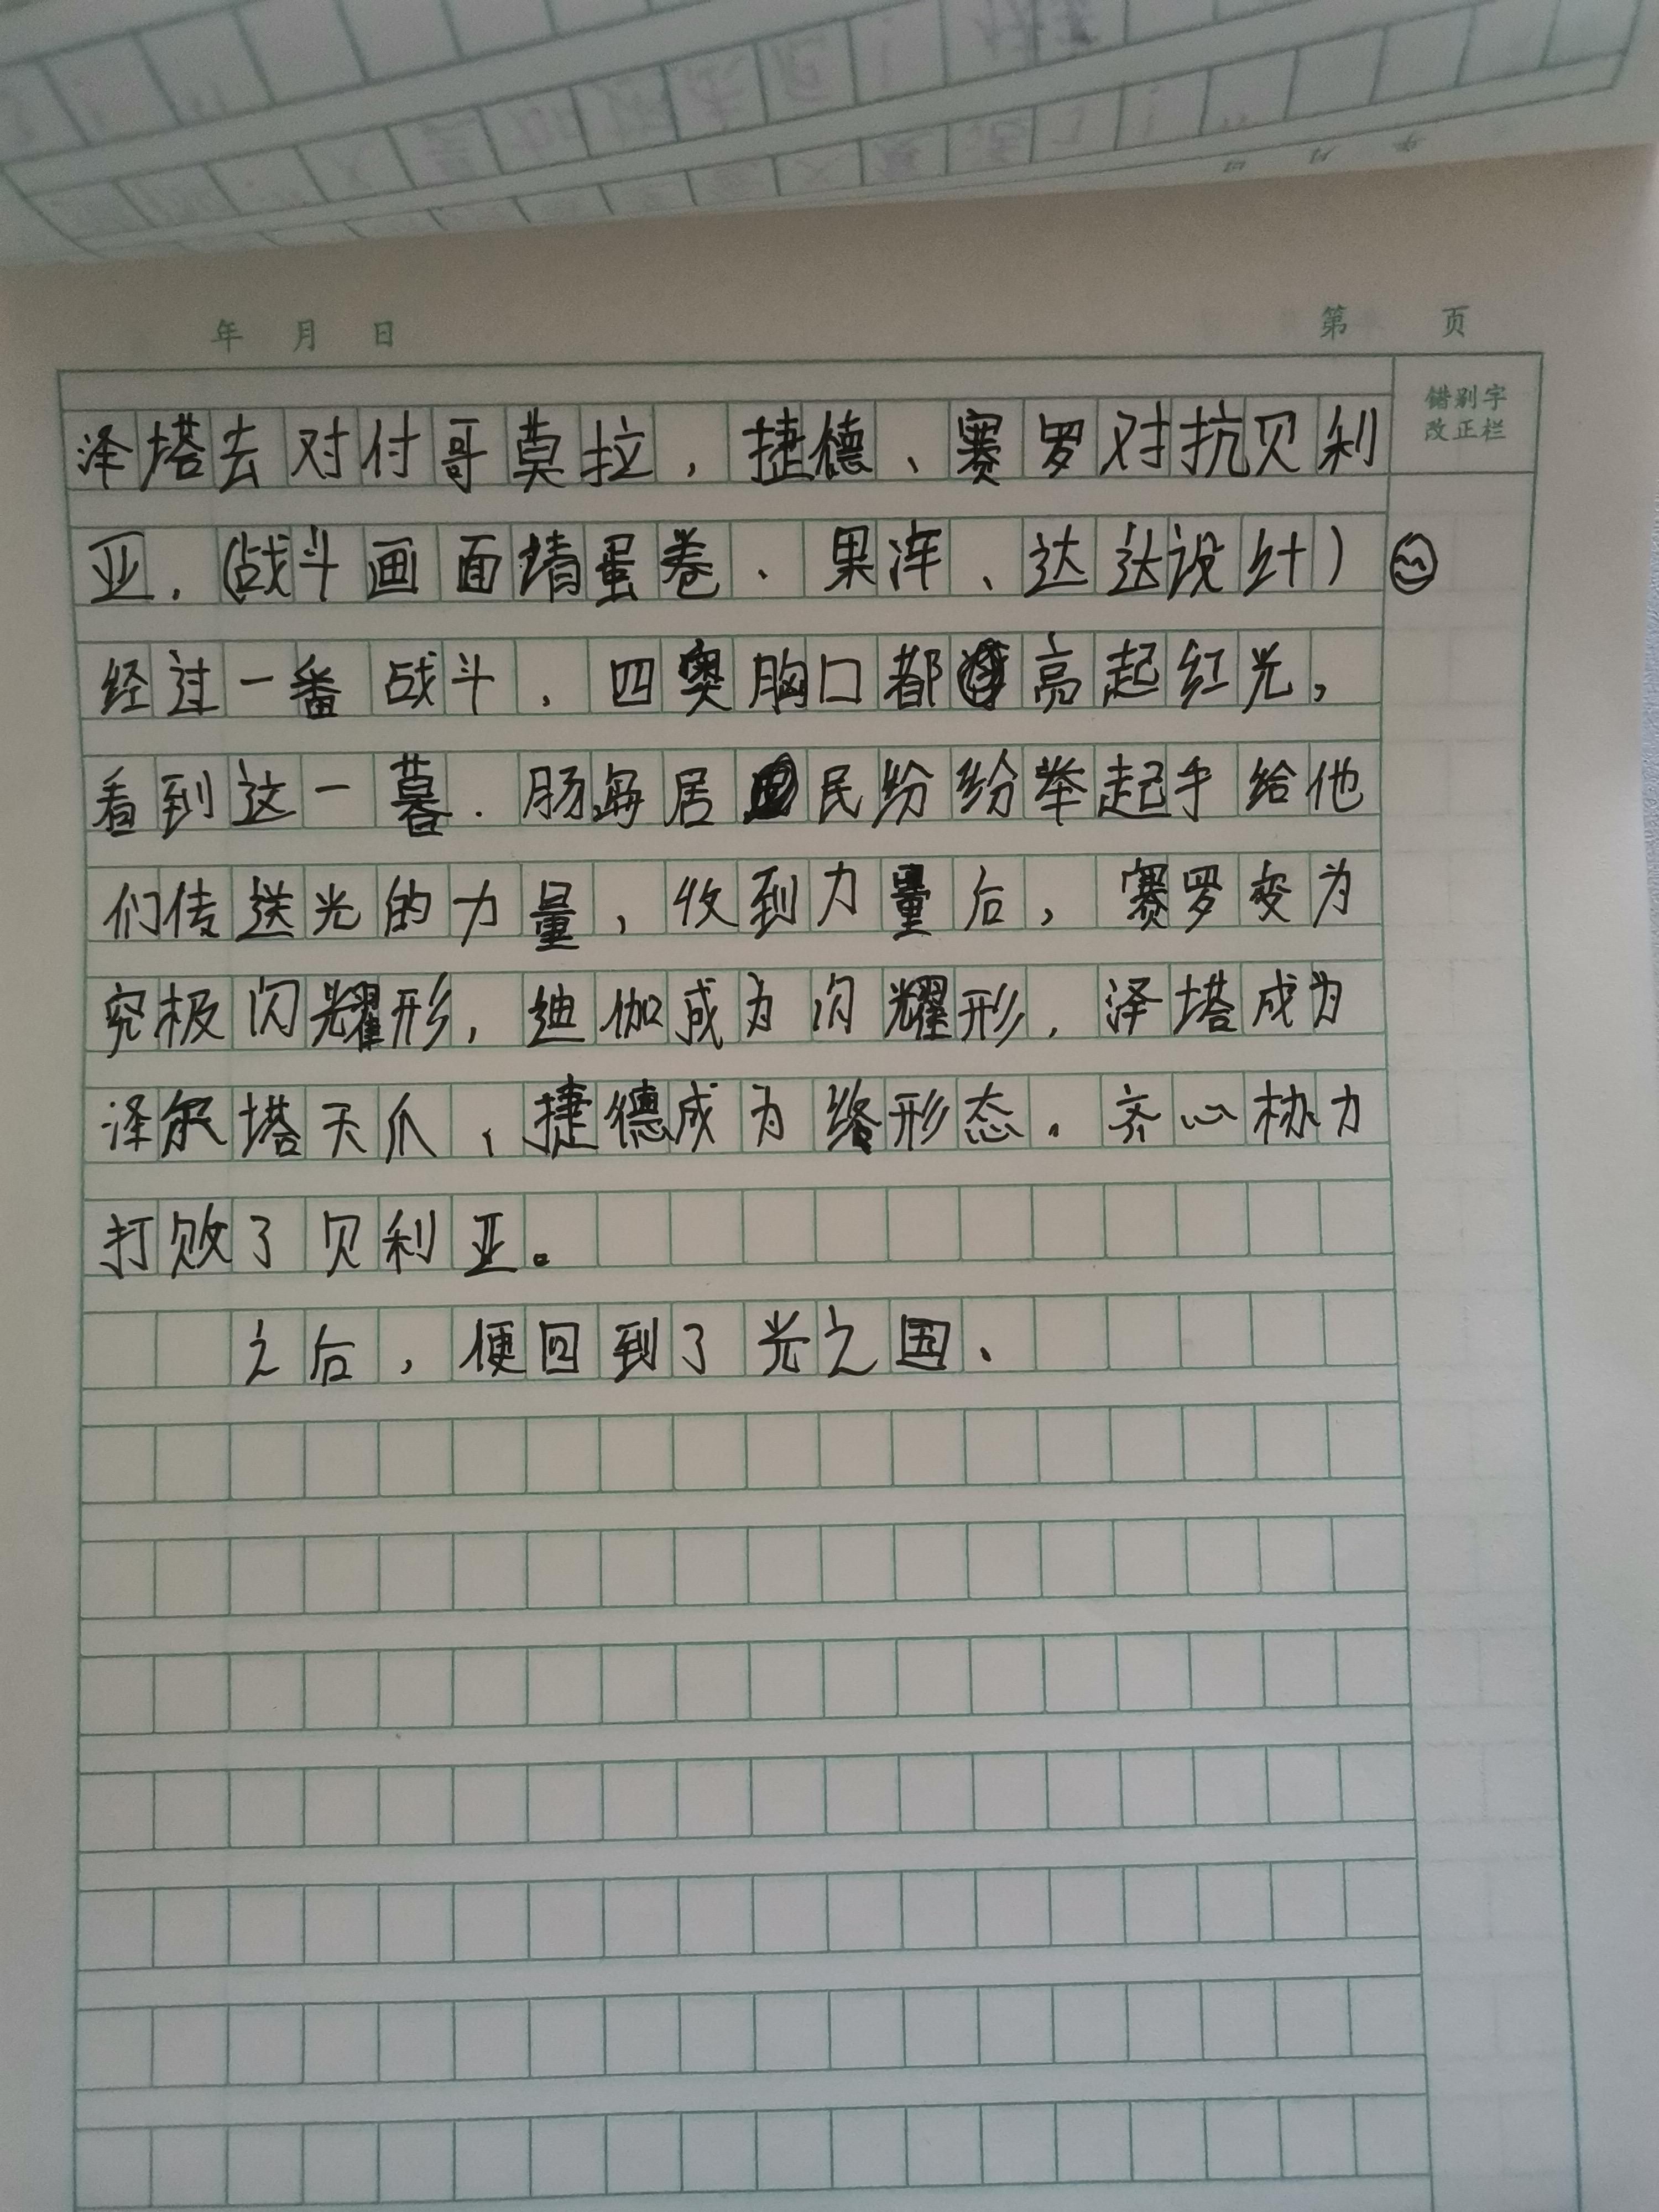 年 月 日
第 页
错别字
改正栏
泽塔去对付哥莫拉，捷德、赛罗对抗贝利
亚.(战斗画面请蛋卷、果泽、达达设计)
经过一番战斗，四奥胸口都高起红光，
看到这一暮.肠海居民纷纷举起手给他
们传送光的力量，收到力量后，赛罗变为
究极闪耀形，迪伽成为闪耀形，泽塔成为
泽尔塔天爪，捷德成为终形态。齐心协力
打败了贝利亚。
之后，便回到了光之国、